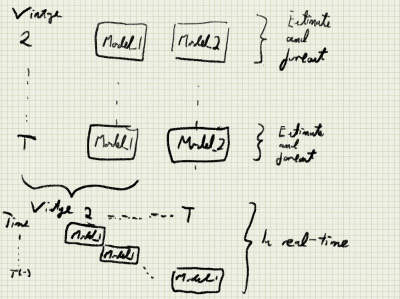 Vintage
2 Model_1 Model_2 Estimate and forecast
T Model_1 Model_2 Estimate and forecast
Vintage 2 ---- T
Time
Model_1
Model_1
In real-time
T(-)
Model_1